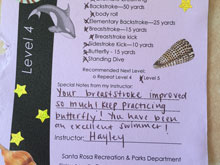 Backstroke—50 yards
x body roll
Elementary Backstroke—25 yards
Breaststroke—15 yards
x Breaststroke kick
Sidestroke Kick—10 yards
Butterfly - 15 yards
Standing Dive
Level 4
Recommended Next Level:
o Repeat Level 4 x Level 5
Special Notes from my instructor:
Your breaststroke improved
so much! Keep practicing
butterfly! You have been
an excellent swimmer!
Instructor: Hayley
Santa Rosa Recreation & Parks Department